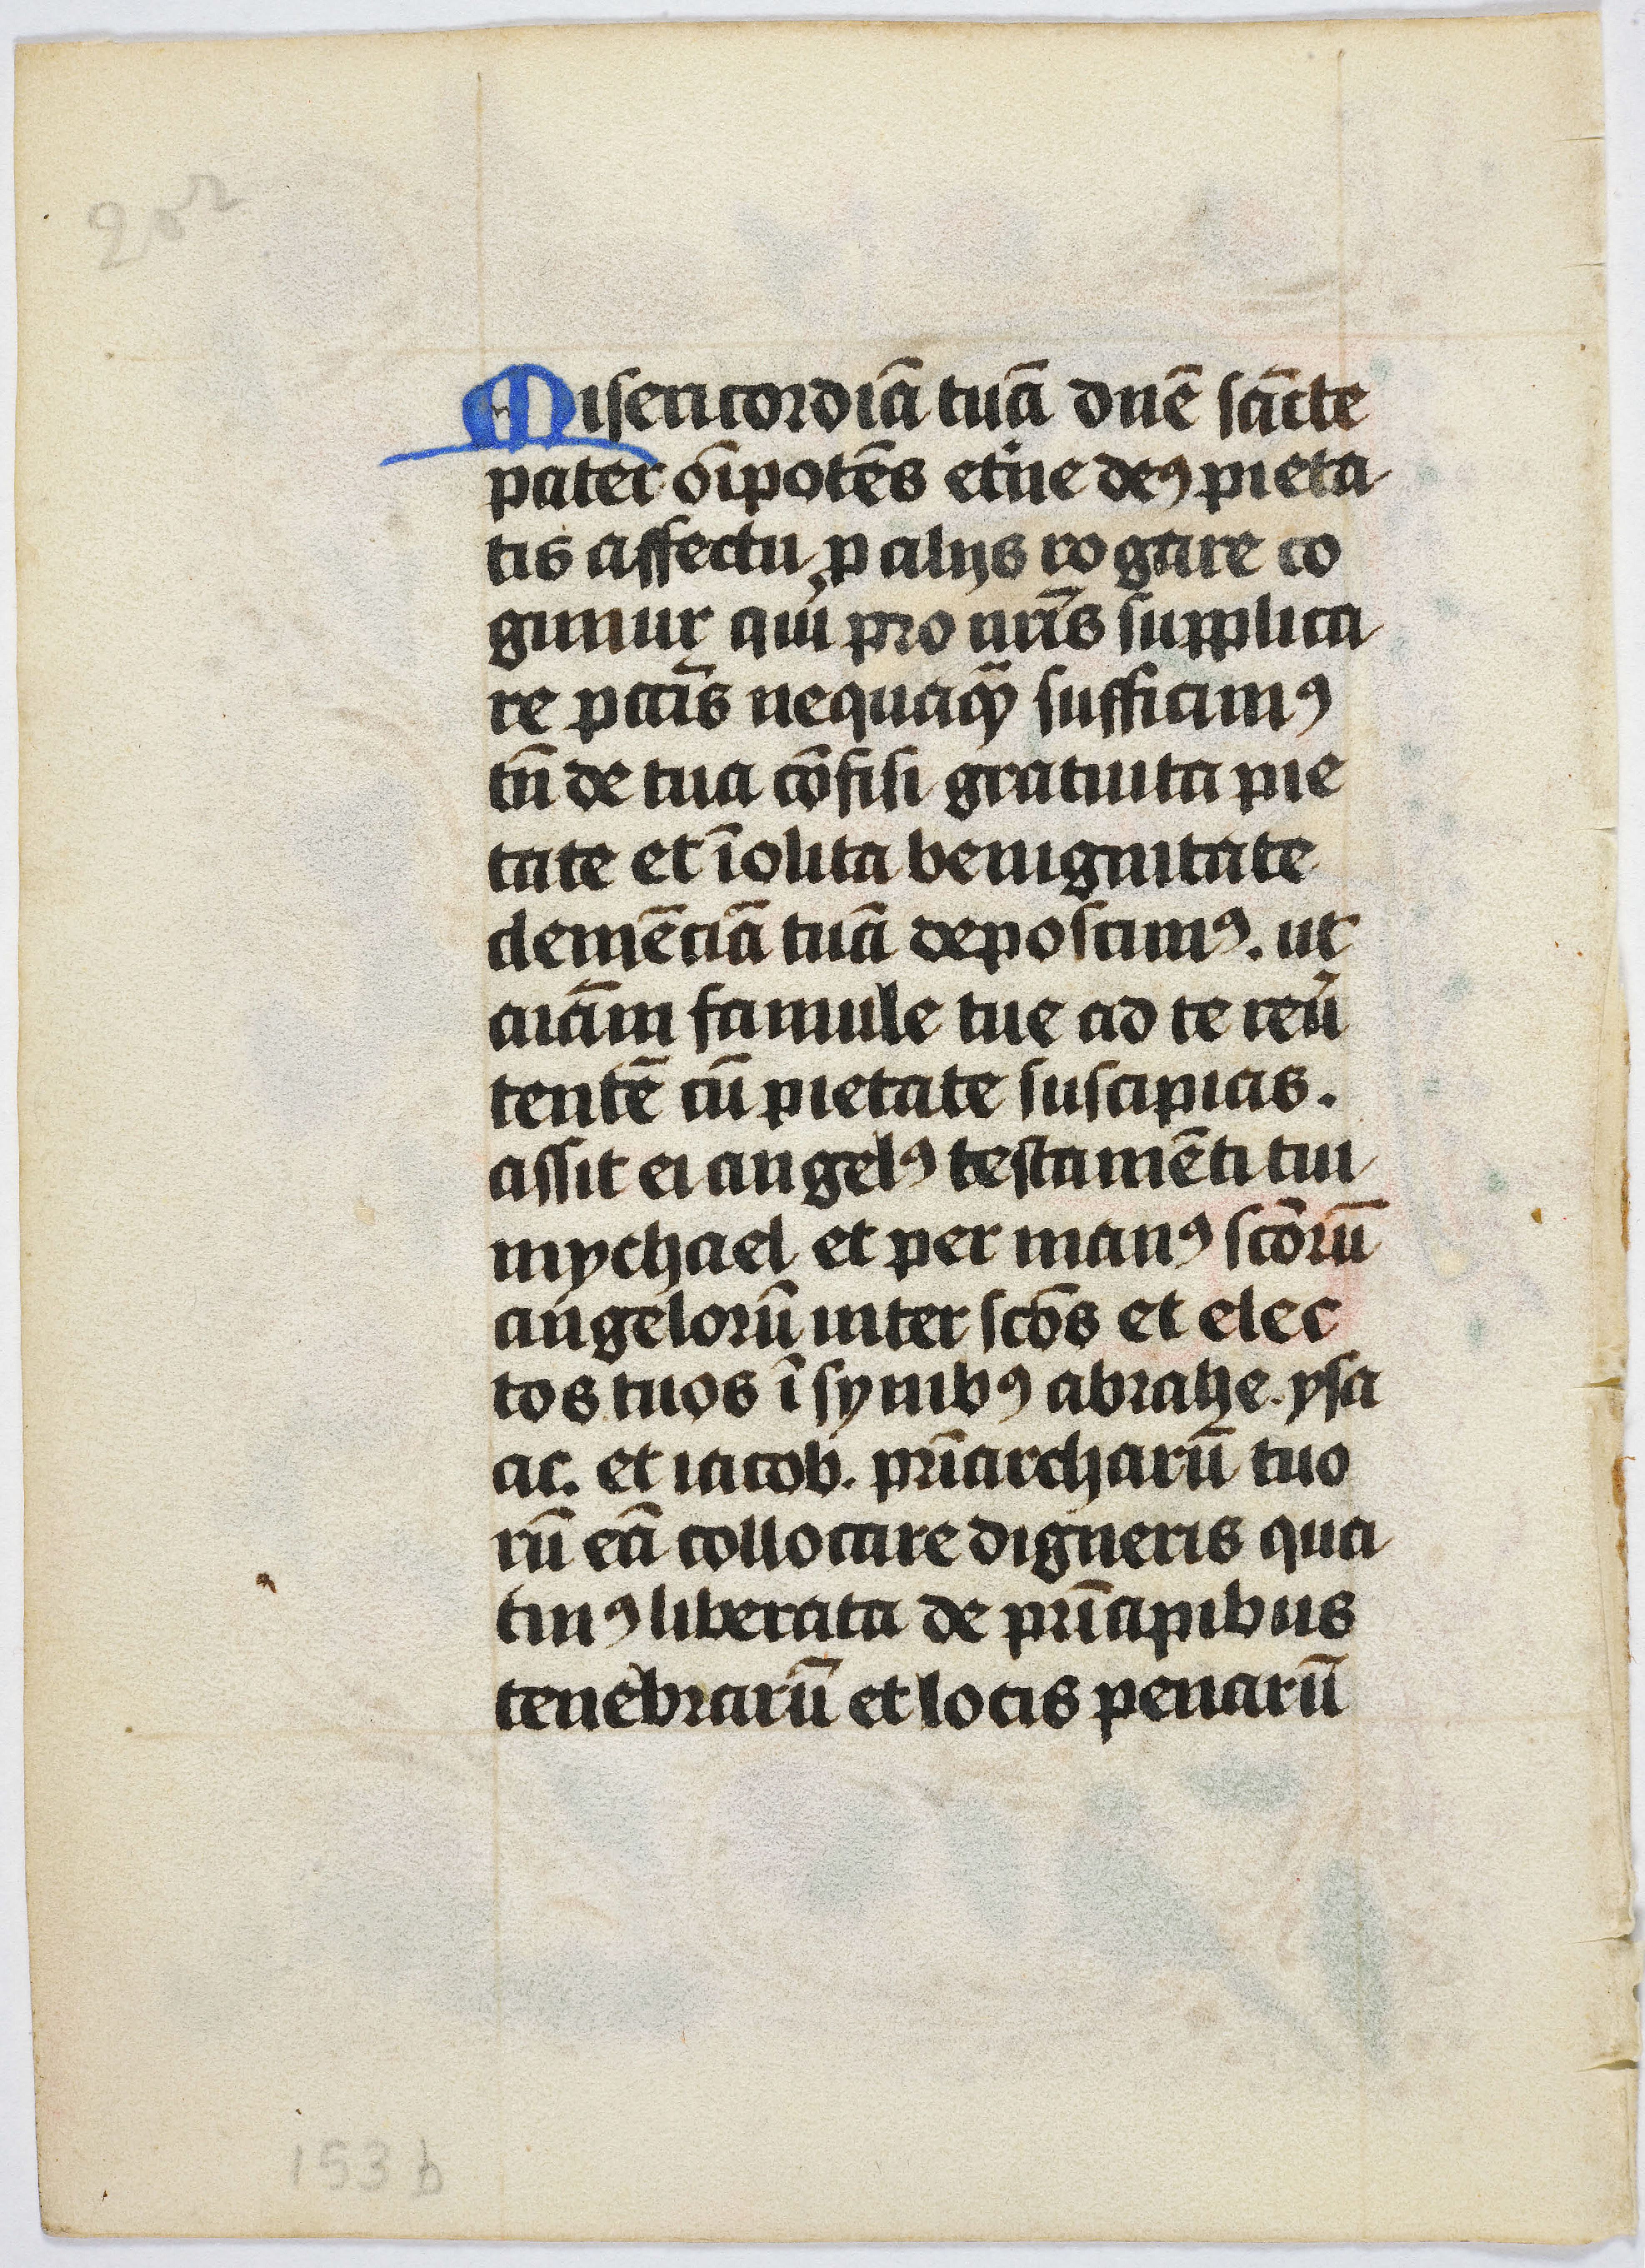 Misericordiā tuā dnē sācte
pater oīpotēs etñe deꝰ pieta
tis affectu ꝓ alijs rogare co
gimur qui pro nrīs supplica
re pctīs nequaqꝫ sufficimꝰ
tñ de tua cōfisi gratuita pie
tate et īolita benignitate
clemēciā tuā deposcimꝰ. ut
aīam famule tue ad te reũ
tentē cū pietate suscipias.
assit ei angelꝰ testamēti tui
mychael et per manꝰ scōrū
angelorū inter scōs et elec
tos tuos ī synibꝰ abrahe. ysa
ac. et iacob. prīarcharū tuo
rū eā collocare digneris qua
tinꝰ liberata de prīcipibus
tenebrarū et locis penarū
153 b